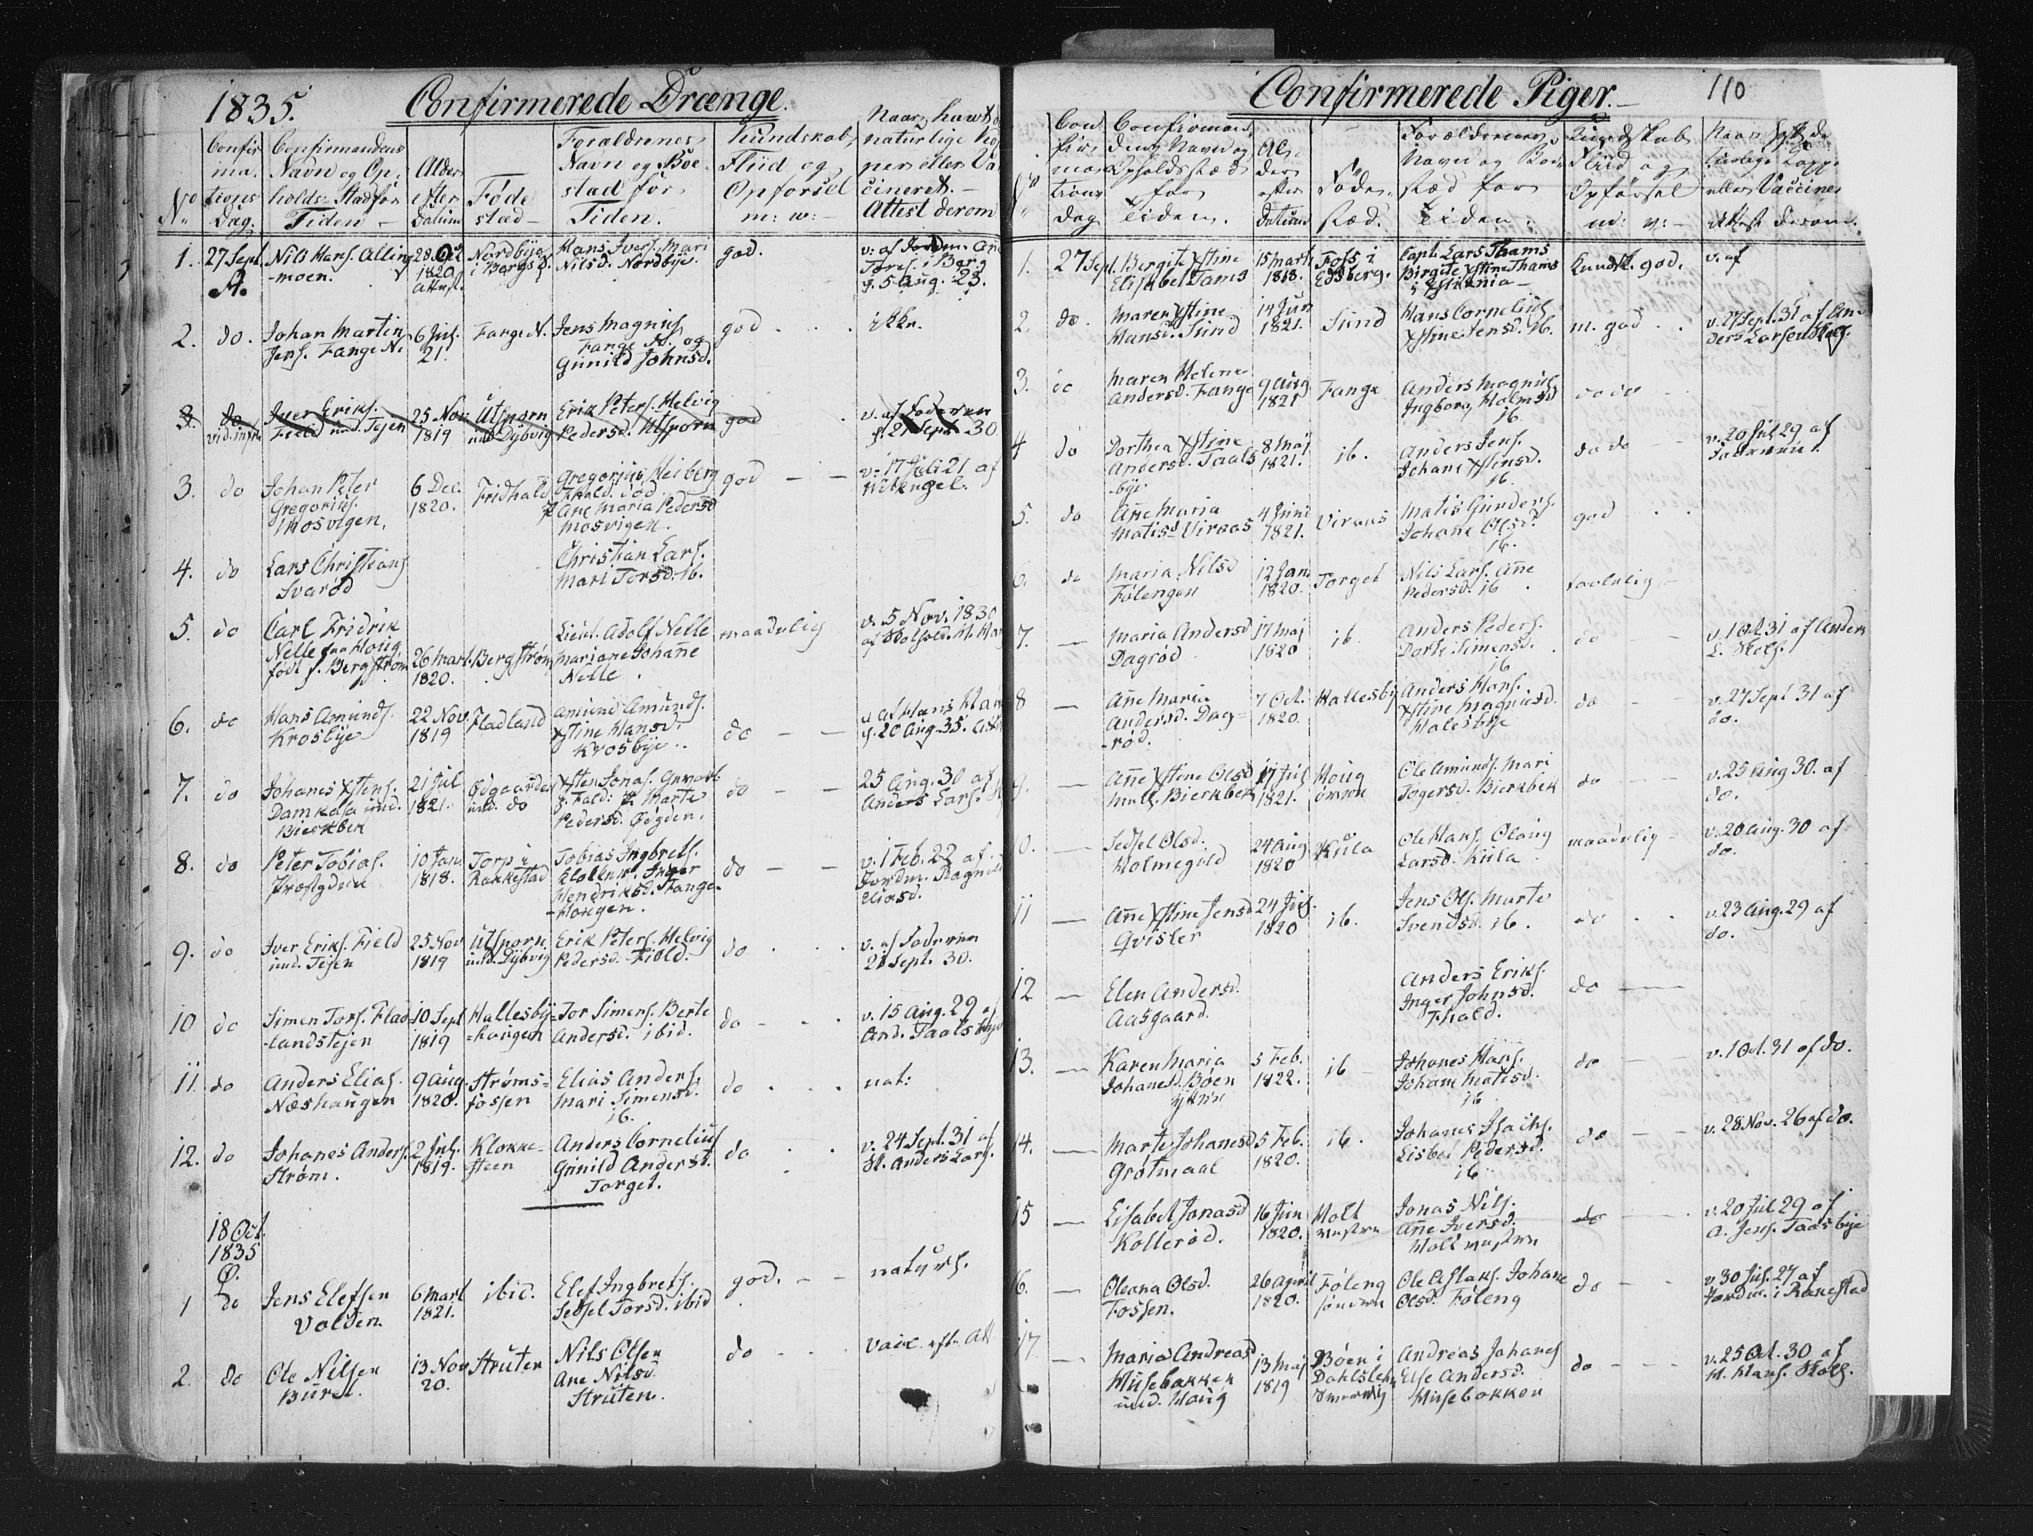 1835.
Confirmerede Drænge.
No
Confir
ma.
tions
Dag.
Confirmandens
Navn og Op,
holds-Stad for
Tiden
Alder
efter
Datum
Føde
stæd
Foraldrenes
Navn og Boe
stæd for
Tiden.
Kundskab,
Fliid og
Opforsel
m: w:
Naar havt d
naturlige Kop
per eller Va
cineret.
Attest derom
1.
27 Sept.
A.
Nils Hans. Alling
-moen.
28
1820
Nordbye
i Bergs
Hans Ivers. Mari
Nilsd. Nordbye.
god.
v: af Jordm.
i Berg
5 Aug. 23.
2.
do.
Johan Martin
Jens. Fange N.
6 Jul.
21
Fange N.
Jens Magnus.
Fange N. og
Gunild Johnsd.
god
ikke.
3.
do
Iver Eriks.
Field und. Tejen
25 Nov.
1819
Utsporn
und. Dybvig
Erik Peters. Helvig
Pedersd. Utsporn
god
v. af Fodernen
21 Sept. 30
3.
do
Johan Peter
Gregorius.
Mosvigen.
6 Dec.
1820.
Fridhald
Gregorius Heiberg
Fhald. død
Ane Maria Pedersd
Mosvigen.
god
v. 17 Juli 21 af
4.
do
Lars Christians
Svarød
Christian Lars.
Mari Torsd. ib.
5.
do
Carl Fridrik
Nelle paa Houg,
født p. Bergstrøm
26 Mart.
1820.
Bergstrøm
Lieut. Adolf Nelle
Mariane Johane
Nelle.
maadelig
v. 5 Nov. 1830
6.
do
Hans Amunds.
Krosbye
22 Nov
1819
Fladland
Amund Amunds.
Xstine Hansd.
Krosbye.
do
v. af Hans
20 Aug. 35.
7.
do
Johanes Xstens.
Damkasa und.
Bierkbek
21 Jul
1821.
Ødgaarden
und. do
Xsten Jonas.
Fhald: Marte
Pedersd. Ødgden.
do
25 Aug. 30 af
Anders Lars.
8.
do
Peter Tobias.
Præstgden
10 Jan.
1818.
Torp i
Rakkestad
Tobias Ingbrets.
Inger
Hendriksd. Stange-
-Hougen.
do
v. 1 Feb. 22 af.
Jordm. Ragnild
Eliasd.
9.
do
Iver Eriks. Field
und. Tejen
25 Nov
1819
Utsporn
und. Dybvig
Erik Peters. Helvig
Pedersd. Field.
do
v. af Fodernen
21 Sept. 30.
10
do
Simen Tors. Flad
-landstejen
10 Sept
1819
Hallesby-
-hougen
Tor Simens. Berte
Andersd. ibid.
do
v. 15 Aug. 29 af
And. Taalsbye
11.
do
Anders Elias.
Næshaugen
9 Aug.
1820.
Strøms-
fossen
Elias Anders.
Mari Simensd.
ib.
do
nat:
12.
do
Johanes Anders.
Strøm.
2 Jul.
1819.
Klokke-
steen
Anders Cornelius
Gunild Andersd.
Torget.
do
v. 24 Sept. 31 af
Sk. Anders Lars.
18 Oct.
1835
1
do
Jens Elefsen
Volden
6 Mart
1821.
ibid.
Elef Ingbrets.
Sedsel Torsd. ibid
god.
naturs.
2
do
Ole Nilsen
Buret.
13 Nov
20.
Struten
Nils Olsen
Ane Nilsd
Struten.
do
Vaxc. efter Att
Confirmerede Piger.
110
No
Con
fir
ma
tions
Dag
Confirman
dens Navn og
Opholdsstæd
for
Tiden.
Al-
der
efter
Datum
Føde.
stæd.
Forældrenes
Navn og Boe
stæd for
Tiden.
Kundskab
Fliid og
Opførsel
m: v:
Naar havt de
naturlige Kopp
eller Vaccinen
Attest derom.
1.
27 Sept.
Bergite Xstine
Elisabet Tams
15 Mart
1818.
Foss i
Edsberg.
Capt. Lars Thams
Birgite Xstine Thams
i Xstiania
Kundsk. god.
v. af
2.
do.
Maren Xstine
Hansd. Sund
14 Jun
1821.
Sund
Hans Cornelius
Xstine Jensd. ib.
m. god
v. 27 Sept. 31 af An
ders Larsen Skolg.
3.
do
Maren Helene
Andersd. Fange
9 Aug
1821
Fange
Anders Magnus.
Ingborg Holmsd
ib.
do do
4
do
Dorthea Xstine
Andersd. Taals
-bye
8 Maj
1821.
ib.
Anders Jens.
Johane Xstensd.
ib.
do do
v. 20 Jul 29 af
Fodernen.
5.
do
Ane Maria
Matisd Viraas
4 Juni
1821.
Viraas
Matis Gunders.
Johane Olsd.
ib.
god
6.
do
Maria Nilsd
Følengen
12 Jan.
1820.
Torget
Nils Lars. Ane
Pedersd. ib
taalelig
7.
Maria Andersd
Dagrød
17 Maj
1820
ib
Anders Peders.
Dorte Simensd.
ib
do
v. 1 Oct. 31 af Anders
L. Skols.
8
Ane Maria
Andersd. Dag-
-rød.
7 Oct.
1820.
Hallesby
Anders Hans.
Xstine Magnusd.
Halesbye
do
v. 27 Sept 31 af
do.
9.
Ane Xstine Olsd
Bierkbek
17 Jul
1821.
Houg
Ole Amunds. Mari
Togersd. Bierkbek
do
v. 25 Aug 30. af
do.
10.
Sedsel Olsd.
Holmegild
24 Aug
1820
Kula
Ole Hans. Olaug
Larsd. Kula
maadelig
v. 20 Aug. 30 af
do.
11
Ane Xstine Jensd
Qvisler
24 Jul.
1820
ib.
Jens Ols. Marte
Svendsd. ib.
do
v. 23 Aug. 29 af
do.
12
Elen Andersd.
Aasgaard.
Anders Eriks.
Inger Johnsd.
Fhald.
do
13.
Karen Maria
Johanesd. Bøen
ytten
5 Feb.
1822.
ib
Johanes Hans.
Johane Matisd.
ib
do
v. 1 Oct. 31 af do.
14.
Marte Johanesd
Grotmaal
5 Feb.
1820.
ib.
Johanes Isachs.
Lisbet Pedersd.
ib
do
v. 28 Nov. 26 af do.
15
Elisabet Jonasd
Kollerød.
16 Jun
1820.
Holt
vestern
Jonas Nils.
Ane Iversd.
Holt vestern
do
v. 20 Jul 29 af
A. Jens. Taasbye
16.
Oleana Olsd.
Fossen.
26 April
1820.
Føleng
søndern
Ole Aslaks. Johane
Olsd. Føleng
do
v 30 Jul. 27 af
Jordm. i Rakestad
17
Maria Andreasd
Musebakken
und. Houg
13 Maj
1819
Bøen i
Dahlsleh
Andreas Johanes
Else Andersd.
Musebakken
do
v. 25 Oct. 30 af
H. Hans. Skolg.